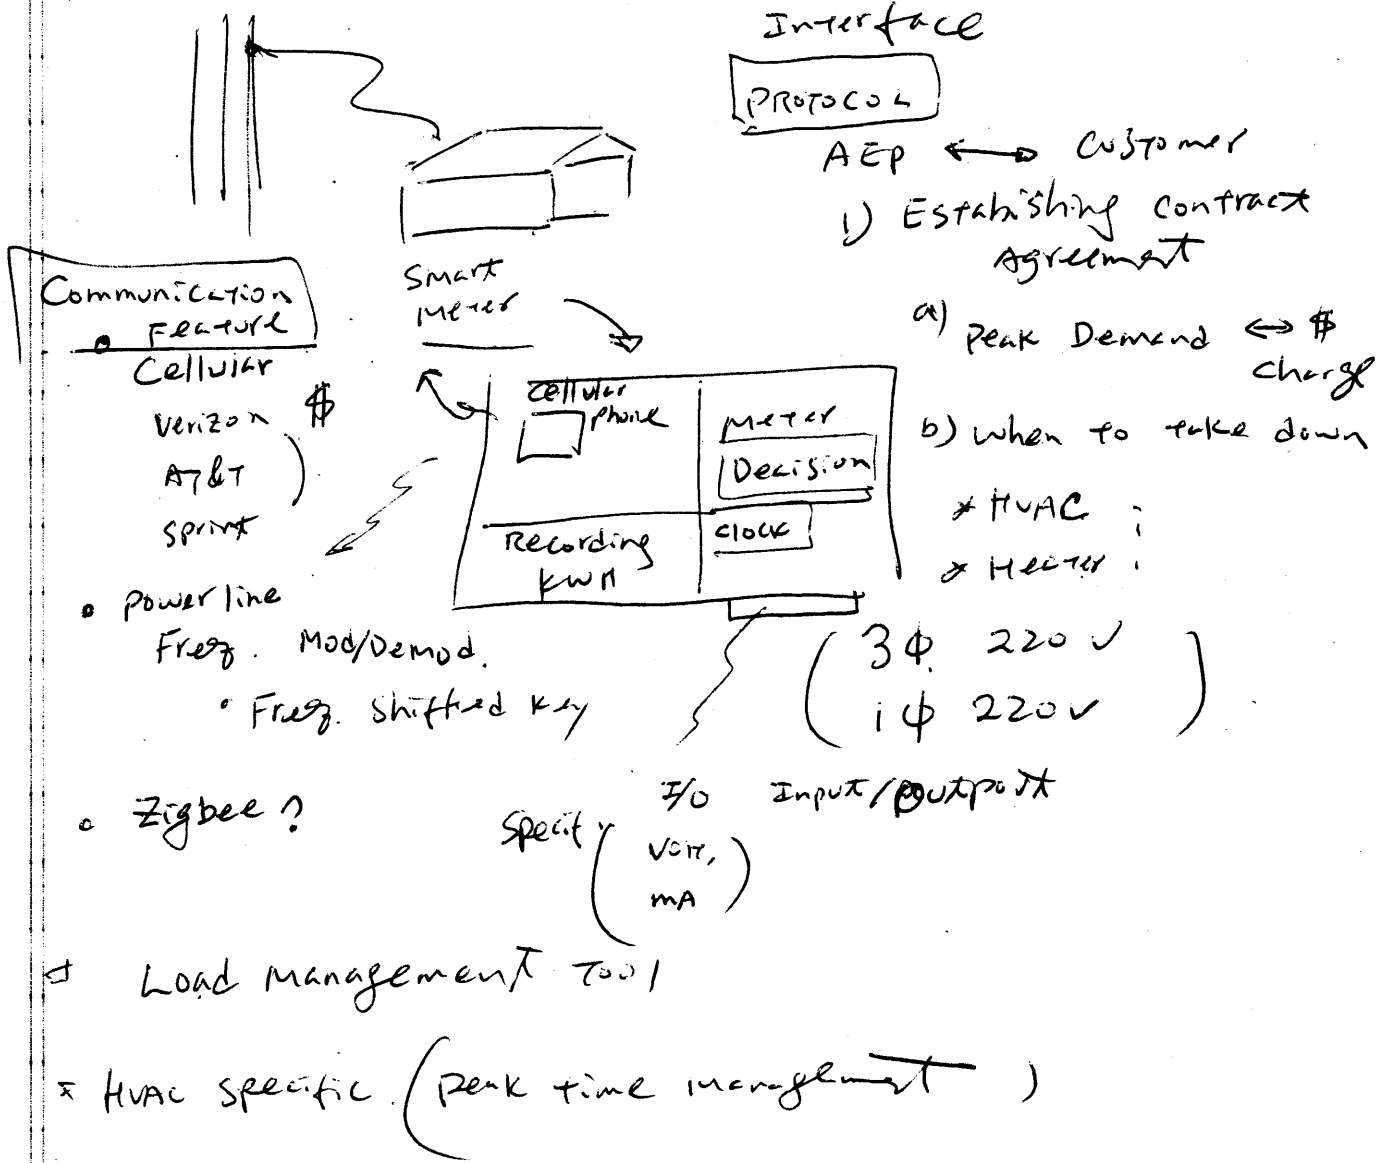 Interface
PROTOCOL
AEP ↔ Customer
1) Establishing contract
Agreement
a) Peak Demand ↔ $
charge
b) when to take down
* HVAC ;
* Heater ;
( 3ϕ 220 V
1ϕ 220 V )
Communication
• Feature
Cellular
Verizon $
AT&T
Sprint
Smart
Meter
Cellular
phone
Meter
Decision
Recording
KWH
Clock
• Power line
Freq. Mod/Demod.
• Freq. Shifted Key
• Zigbee ?
I/O Input/Output port
Specify ( Volt,
mA )
Load Management Tool
* HVAC specific. ( peak time management )